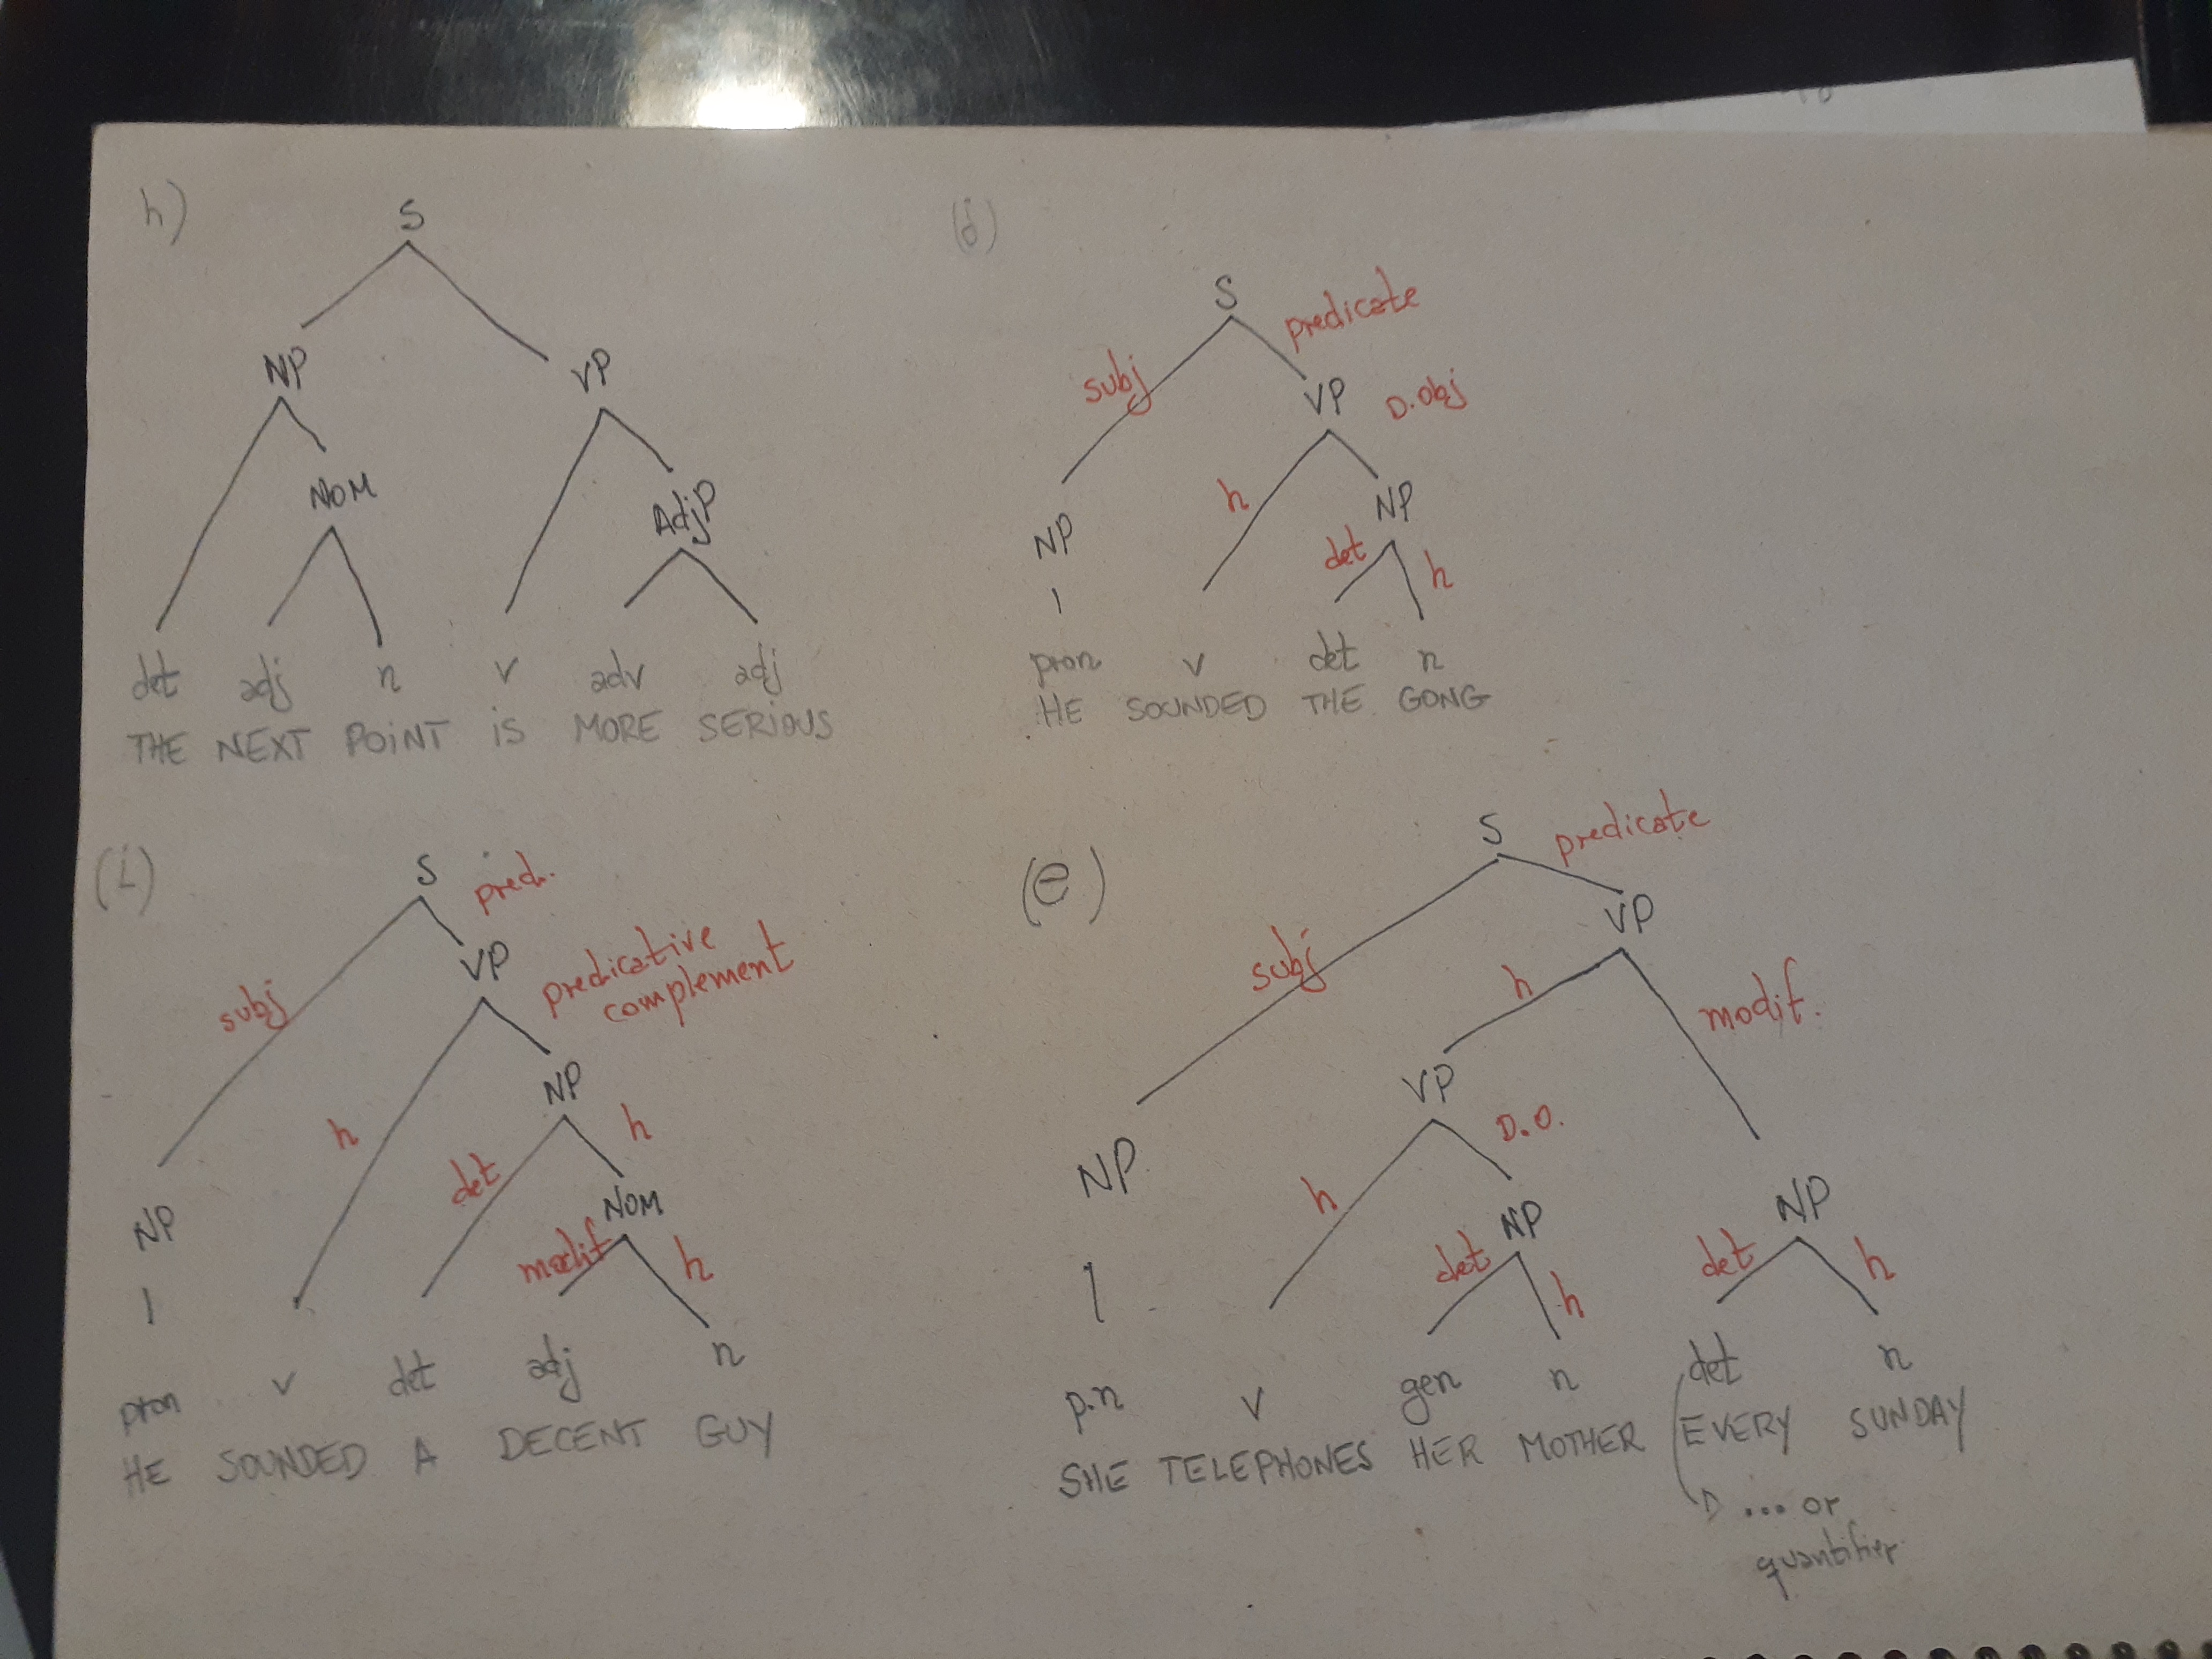 h)
S
NP VP
NOM AdjP
det adj n v adv adj
THE NEXT POINT IS MORE SERIOUS
(i)
S pred.
subj VP predicative
complement
h NP h
NP det NOM
modif h
pron v det adj n
HE SOUNDED A DECENT GUY
S predicate
subj VP D.obj
NP h NP
det h
pron v det n
HE SOUNDED THE GONG
(e)
S predicate
subj VP modif.
h
NP VP D.O.
h NP NP
det h det h
p.n v gen n det n
SHE TELEPHONES HER MOTHER (EVERY SUNDAY
... or
quantifier